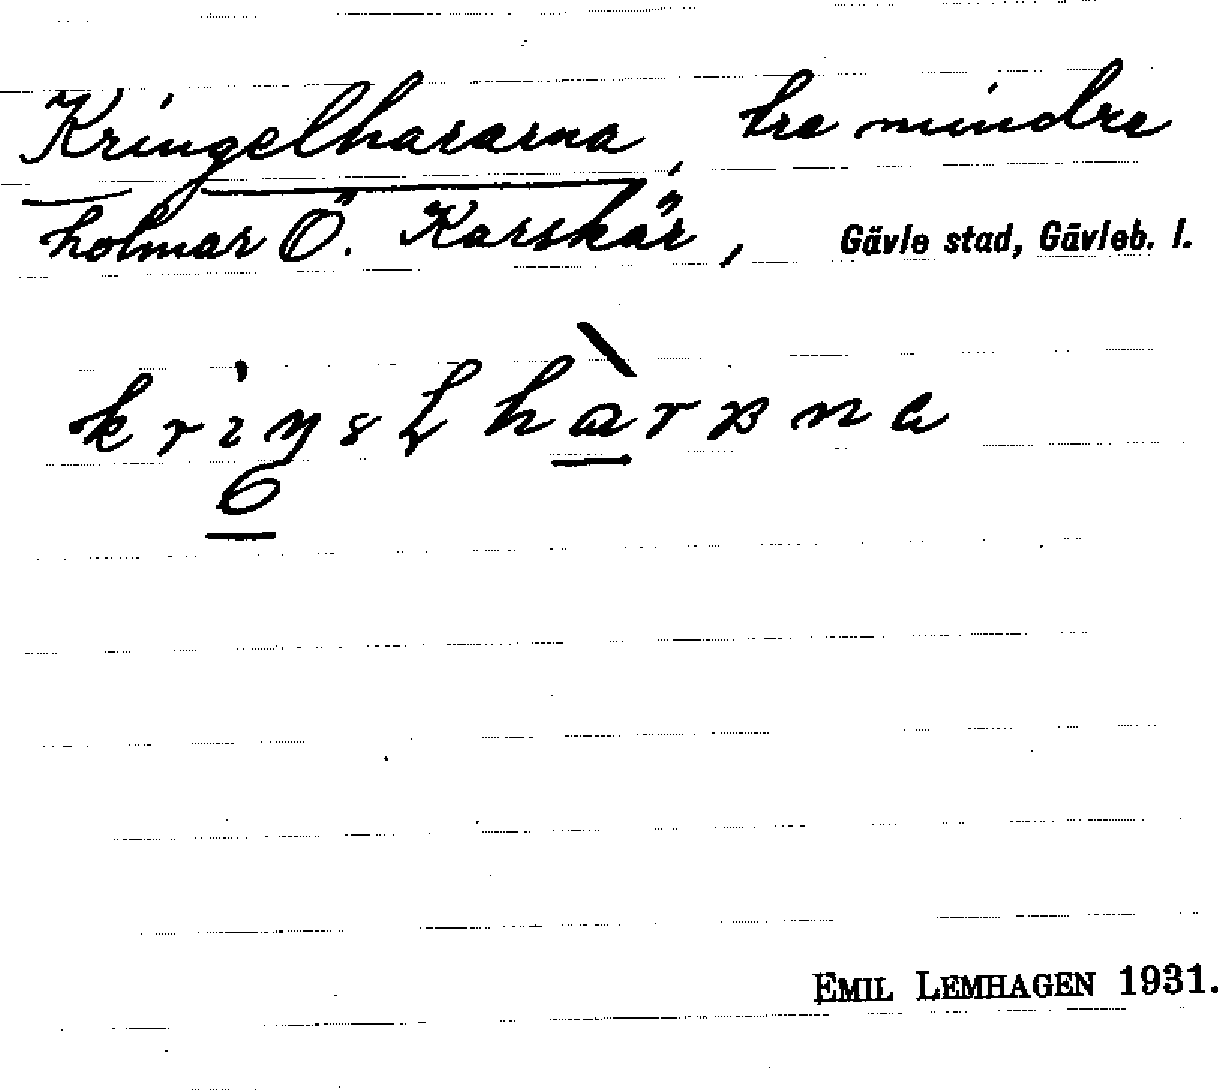 Kringelhararna, tre mindre
holmar Ö. Karskär, Gävle stad, Gävleb. l.
EMIL LEMHAGEN 1931.